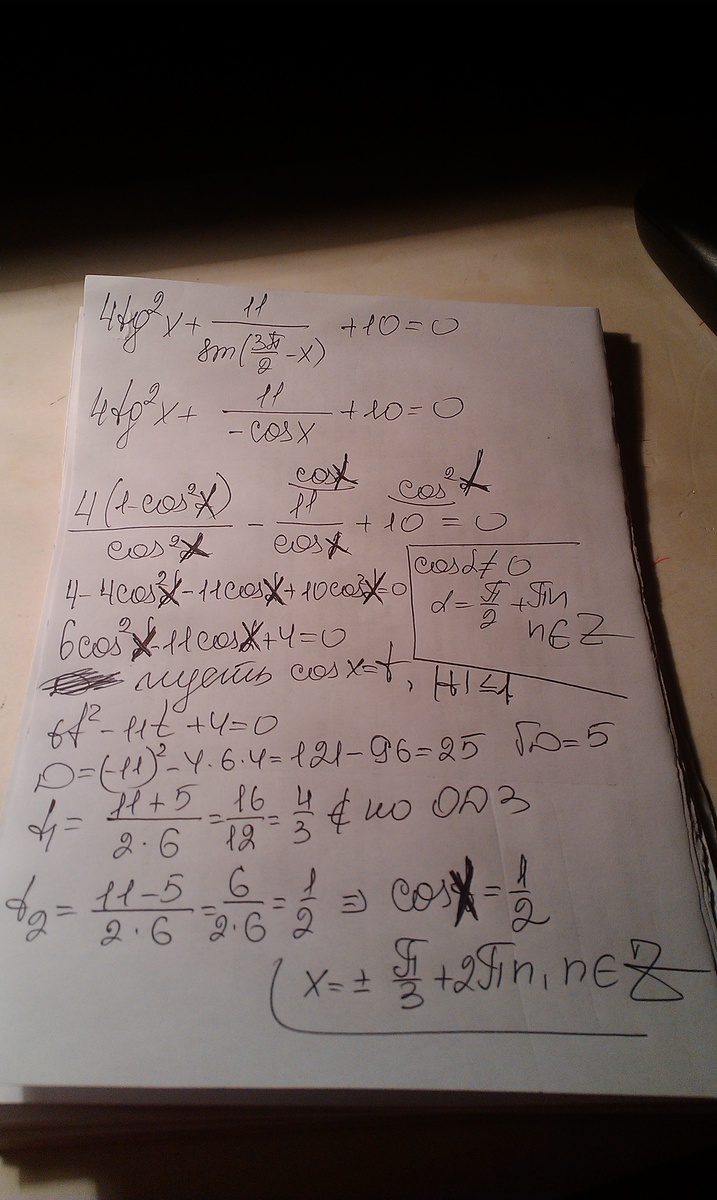 4tg²x + 11/sin(3π/2 - x) + 10 = 0
4tg²x + 11/-cosx + 10 = 0
cosx cos²x
4(1-cos²x)/cos²x - 11/cosx + 10 = 0
4 - 4cos²x - 11cosx + 10cos²x = 0
cosα ≠ 0
α = π/2 + πn
n ∈ Z
6cos²x - 11cosx + 4 = 0
пусть cos x = t, |t| ≤ 1
6t² - 11t + 4 = 0
D = (-11)² - 4·6·4 = 121 - 96 = 25 √D = 5
t₁ = 11+5/2·6 = 16/12 = 4/3 ∉ по ОДЗ
t₂ = 11-5/2·6 = 6/2·6 = 1/2 ⇒ cosx = 1/2
x = ± π/3 + 2πn, n ∈ Z